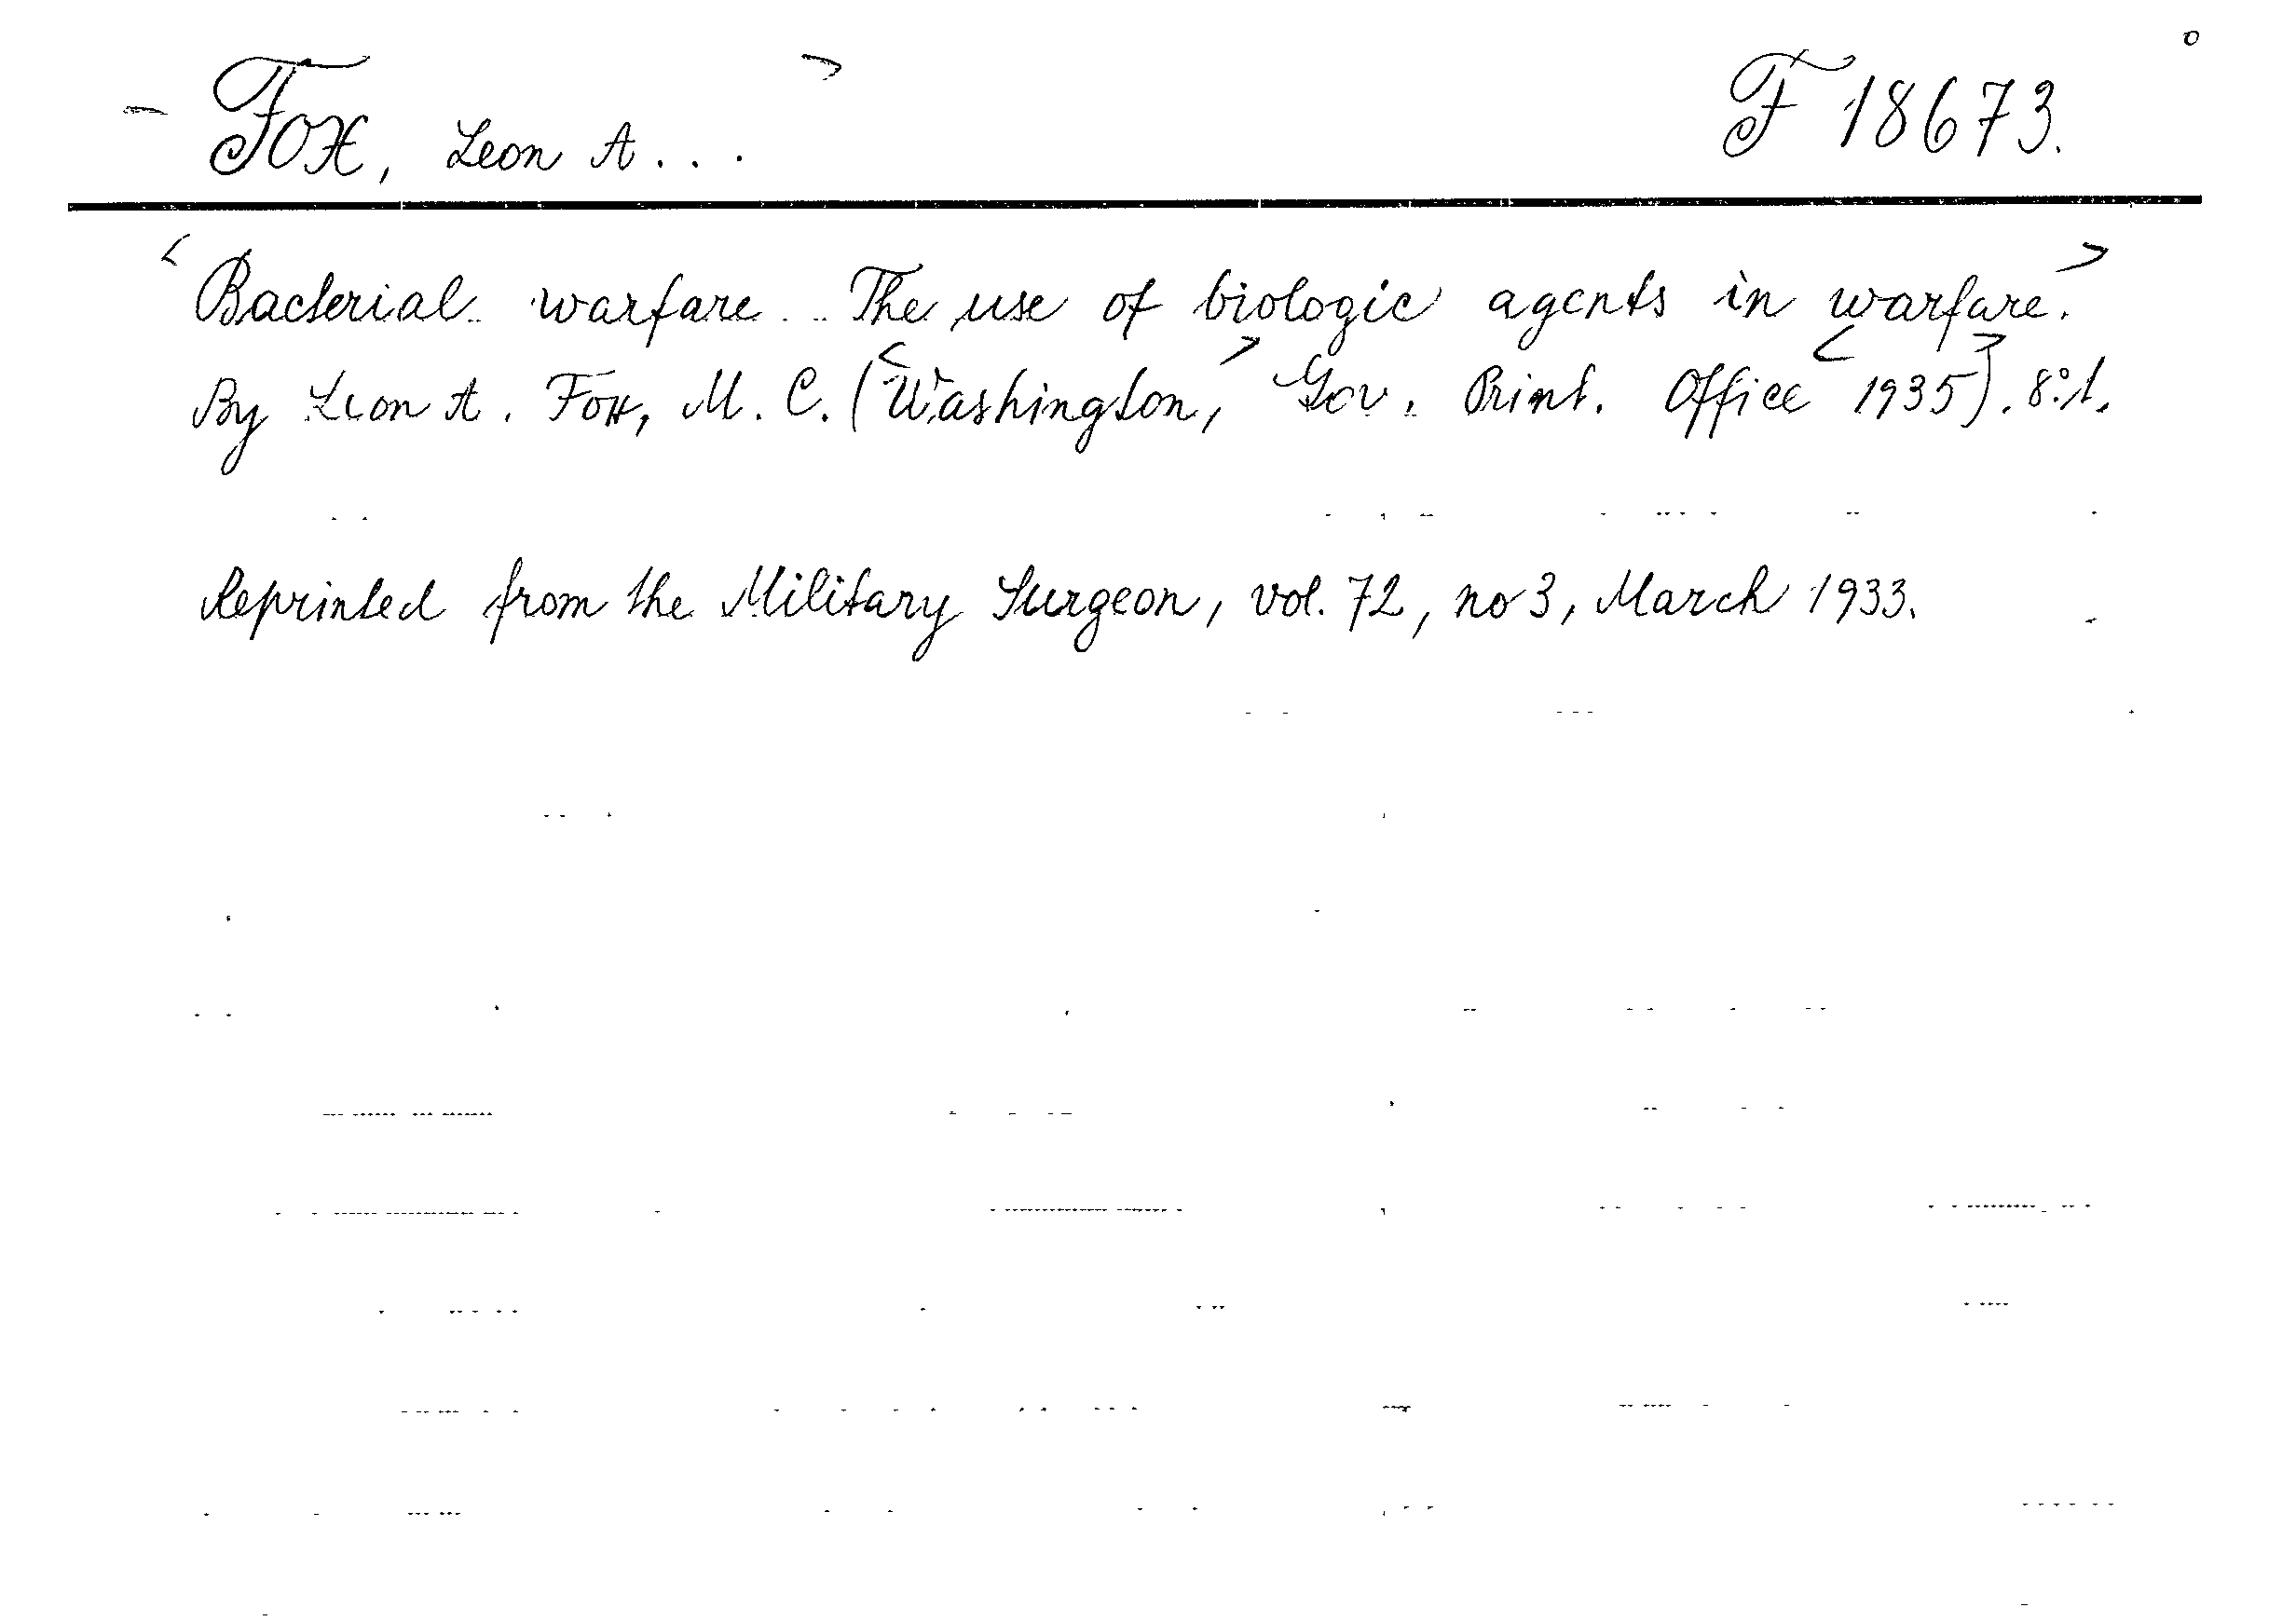 Fox, Leon A... F 18673.
<Bacterial warfare... The use of biologic agents in warfare.>
By Leon A. Fox, M. C. (<Washington,> Gov. Print. Office <1935>). 8°.
Reprinted from the Military Surgeon, vol. 72, no 3, March 1933.